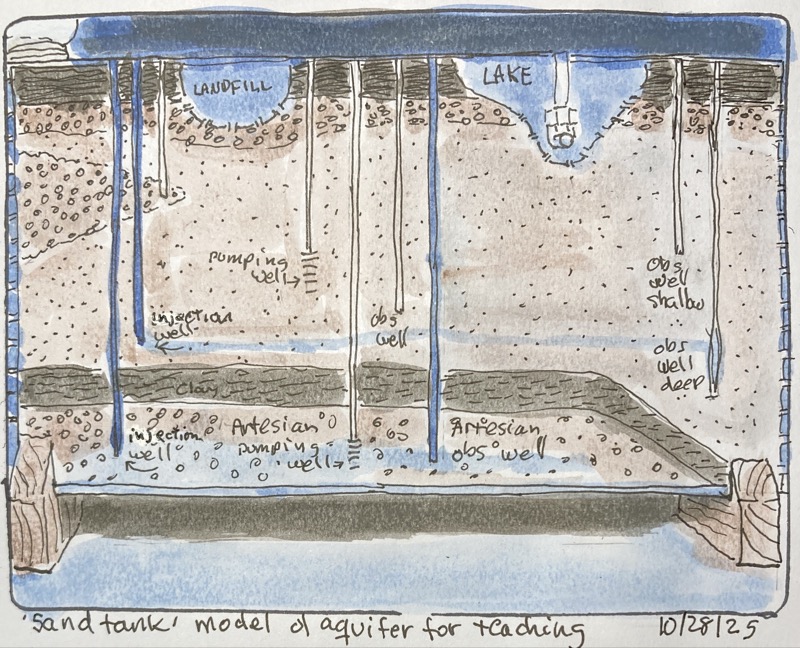 LANDFILL
LAKE
pumping
well
injection
well
obs
well
obs
well
shallow
obs
well
deep
Clay
injection
well
Artesian
pumping
well
Artesian
obs well
'Sand tank' model of aquifer for teaching
10/28/25